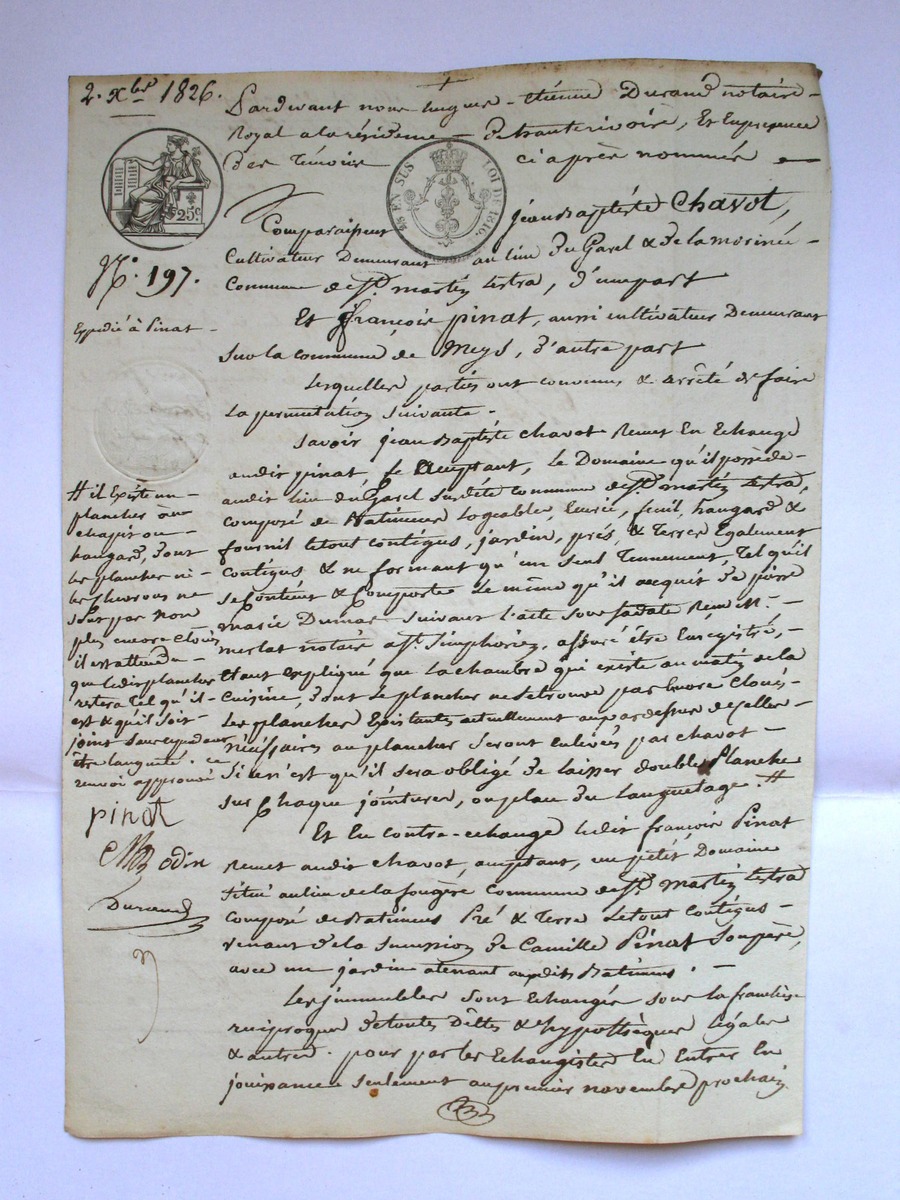 2. Xbre 1826.
Pardevant nous hugues-Etiénne Durand notaire
Royal a la résidence de hauterivoire, Et En presence
des Témoins ci après nommés
25c.
¼ EN SUS LOI DE 1816.
Comparaissent jean Baptiste Chavot,
Cultivateur Demeurant au lieu Du Garel & de la
Commune de St. martin Lestra, d'une part
N°. 197.
Expédié à Pinat
Et françois pinat, aussi cultivateur Demeurant
sur la commune de Meys, d'autre part
Lesquelles parties ont convenus & arrêté de faire
la permutation suivante.
Savoir jean Baptiste chavot Remet En Echange
audit pinat, ce acceptant, le Domaine qu'il possede
audit lieu du Garel Surdite commune de St. martin Lestra,
composé de Batiments Logeable, Ecurie, fenil, hangard &
fournil le tout contigus, jardin, prés, & Terres Egalement
contigus & ne formant qu'un seul Tennement, Tel qu'il
se Contient & Comporte Le même qu'il acquit de pierre
marie Dumas suivant l'acte sous sa date Reçu Me.
merlat notaire a St. Simphorien, assuré être Enregistré,
Etant Expliqué que la chambre qui existe au matin de la
Cuisine, dont le plancher ne se trouve pas Encore Cloué
les planches Existantes actuellement au par dessus de celles
nécéssaires au plancher seront enlevés par chavot
Si ce n'est qu'il sera obligé de laisser double Planche
sur Chaque jointures, ou place du Languetage. #
# il Existe un
plancher au
chapit ou
hangard, dont
les planches ni
les ne
sont pas non
plus encore cloués
il est attendu
que ledit plancher
restera Tel qu'il
est & qu'il soit
joint sauve
être langueté. ce
renvoi approuvé
pinat
Odin
Durand
Et En contre-échange ledit françois Pinat
Remet audit chavot, acceptant, un petit Domaine
situé au lieu de la fougère commune de St. Martin Lestra
composé de Batiments Pré & Terre Le tout Contigus
venant de la succession de Camille Pinat Son père,
avec un jardin atenant auxdits Batiments.
Les immeubles sont Echangés sous la franchise
réciproque de toutes Dettes & hypothèques Légales
& autres. pour par les Echangistes En Entrer En
jouissance seulement au premier novembre prochain